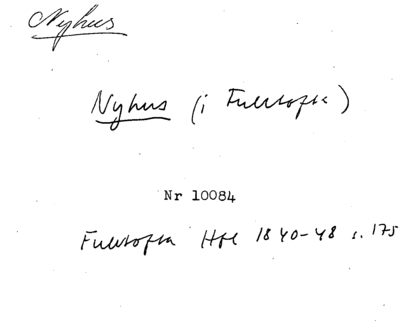 Nyhus
Nyhus (i Fulltofta)
Nr 10084
Fulltofta Hfl 1840-48 s. 175